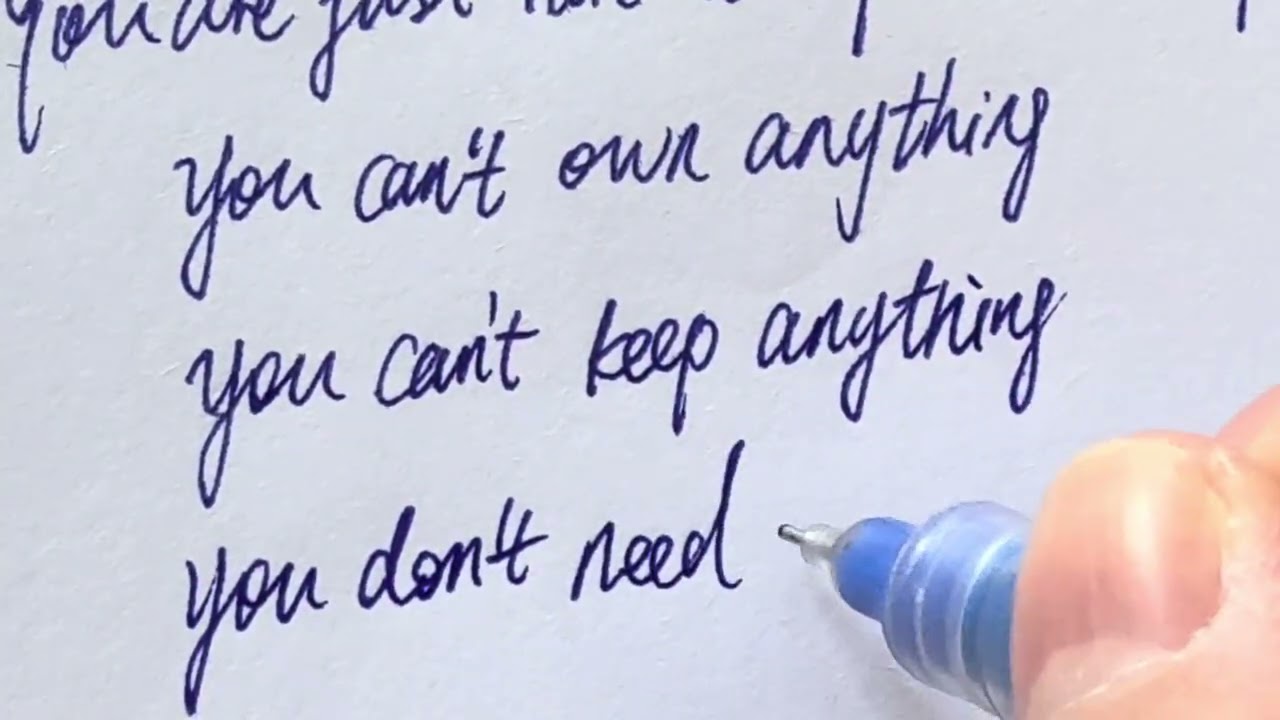 you are just
you can't own anything
you can't keep anything
you don't need